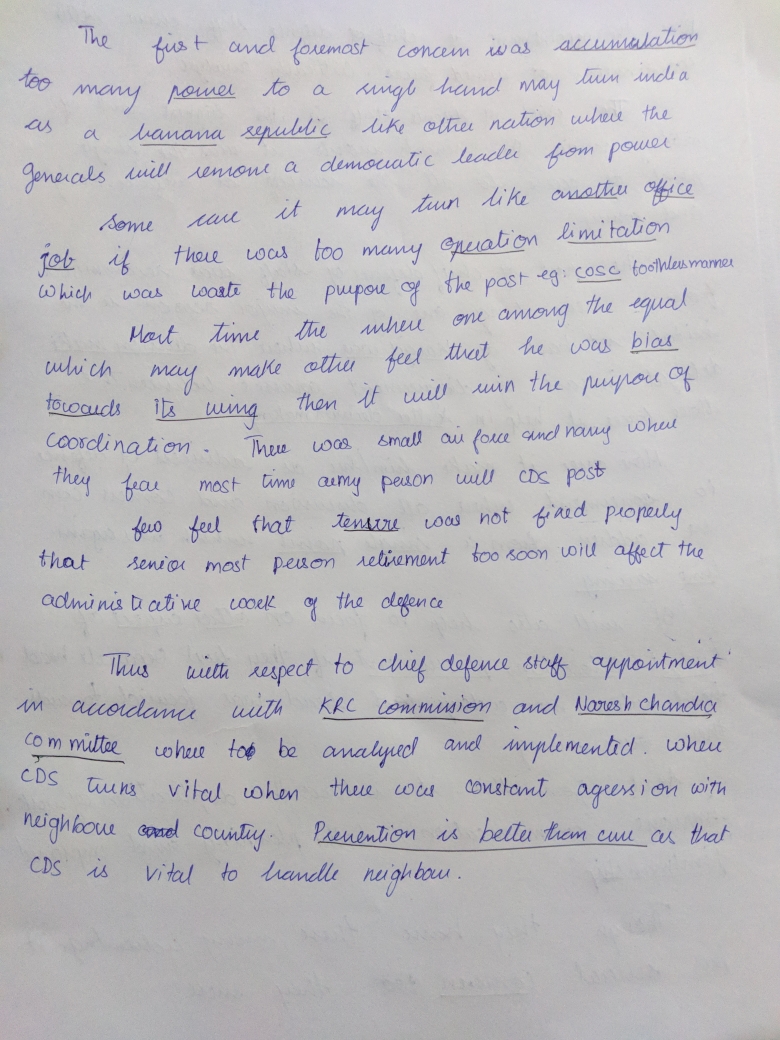 The first and foremost concern was accumulation
too many power to a singl hand may turn india
as a banana republic like other nation where the
generals will remove a democratic leader from power
Some case it may turn like another office
job if there was too many operation limitation
which was waste the purpose of the post eg: COSC toothless manner
Most time the where one among the equal
which may make other feel that he was bias
towards its wing then it will ruin the purpose of
coordination. There was small air force and navy where
they fear most time army person will CDS post
few feel that tensure was not fixed properly
that senior most person retirement too soon will affect the
administrative work of the defence
Thus with respect to chief defence staff appointment
in accordance with KRC commission and Naresh chandra
committee where to be analysed and implemented. where
CDS turns vital when there was constant agression with
neighbour country. Prevention is better than cure as that
CDS is vital to handle neighbour.